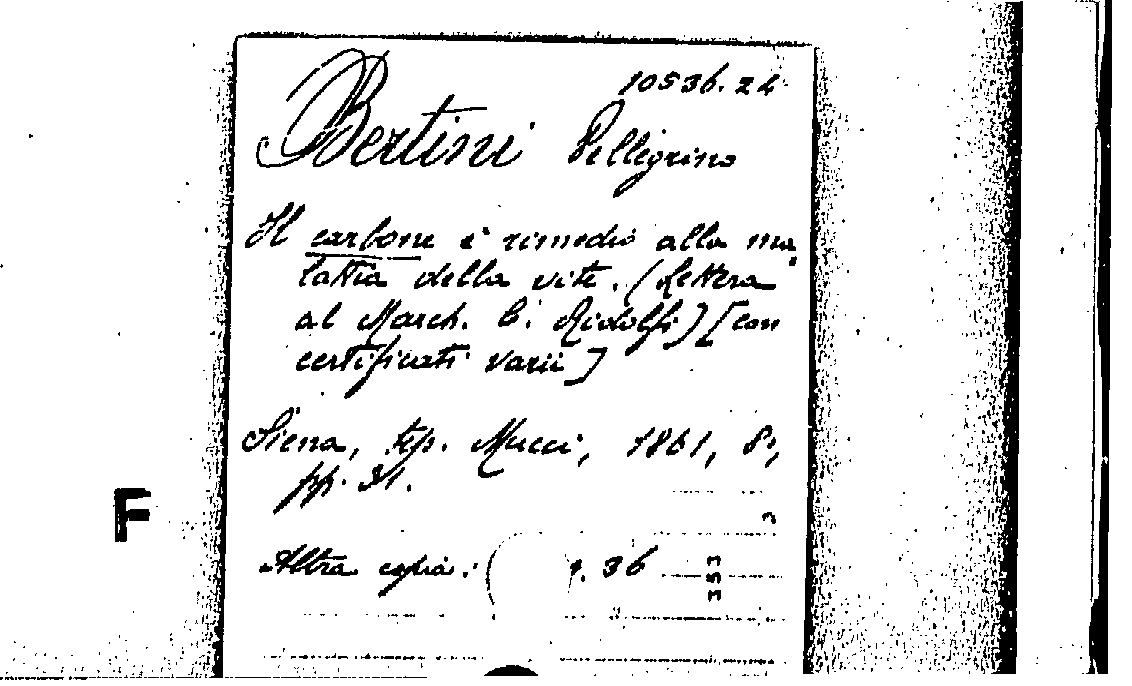 10536.24
Bertini Pellegrino
Il carbone è rimedio alla ma-
lattia della vite. (Lettera
al March. C. Ridolfi) [con
certificati varii]
Siena, tip. Mucci, 1861, 8°,
pp. 31.
3
F
Altra copia: 36
353